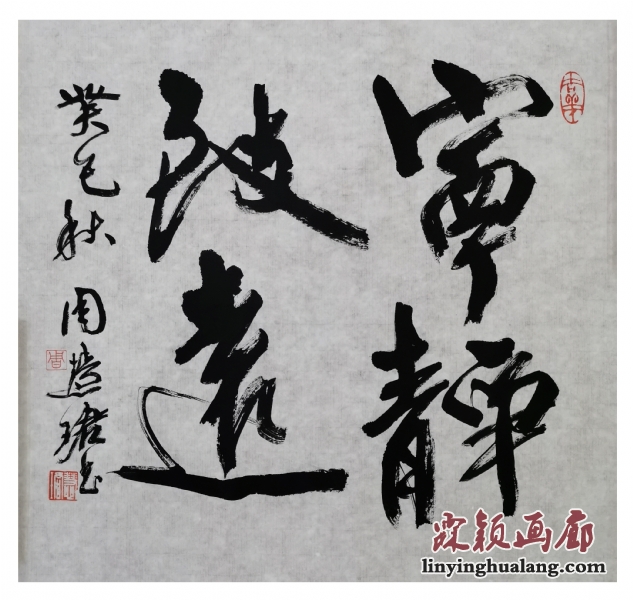 寧靜
致遠
癸巳秋 周慧珺书
霖颖画廊
linyinghualang.com